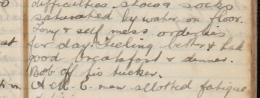 difficulties. shoes & socks
saturated by water on floor.
Tony & self mess orderlies
at for day. Feeling better & had
good breakfast & dinner.
Bob of his tucker.
A.M.C. men allotted fatigue